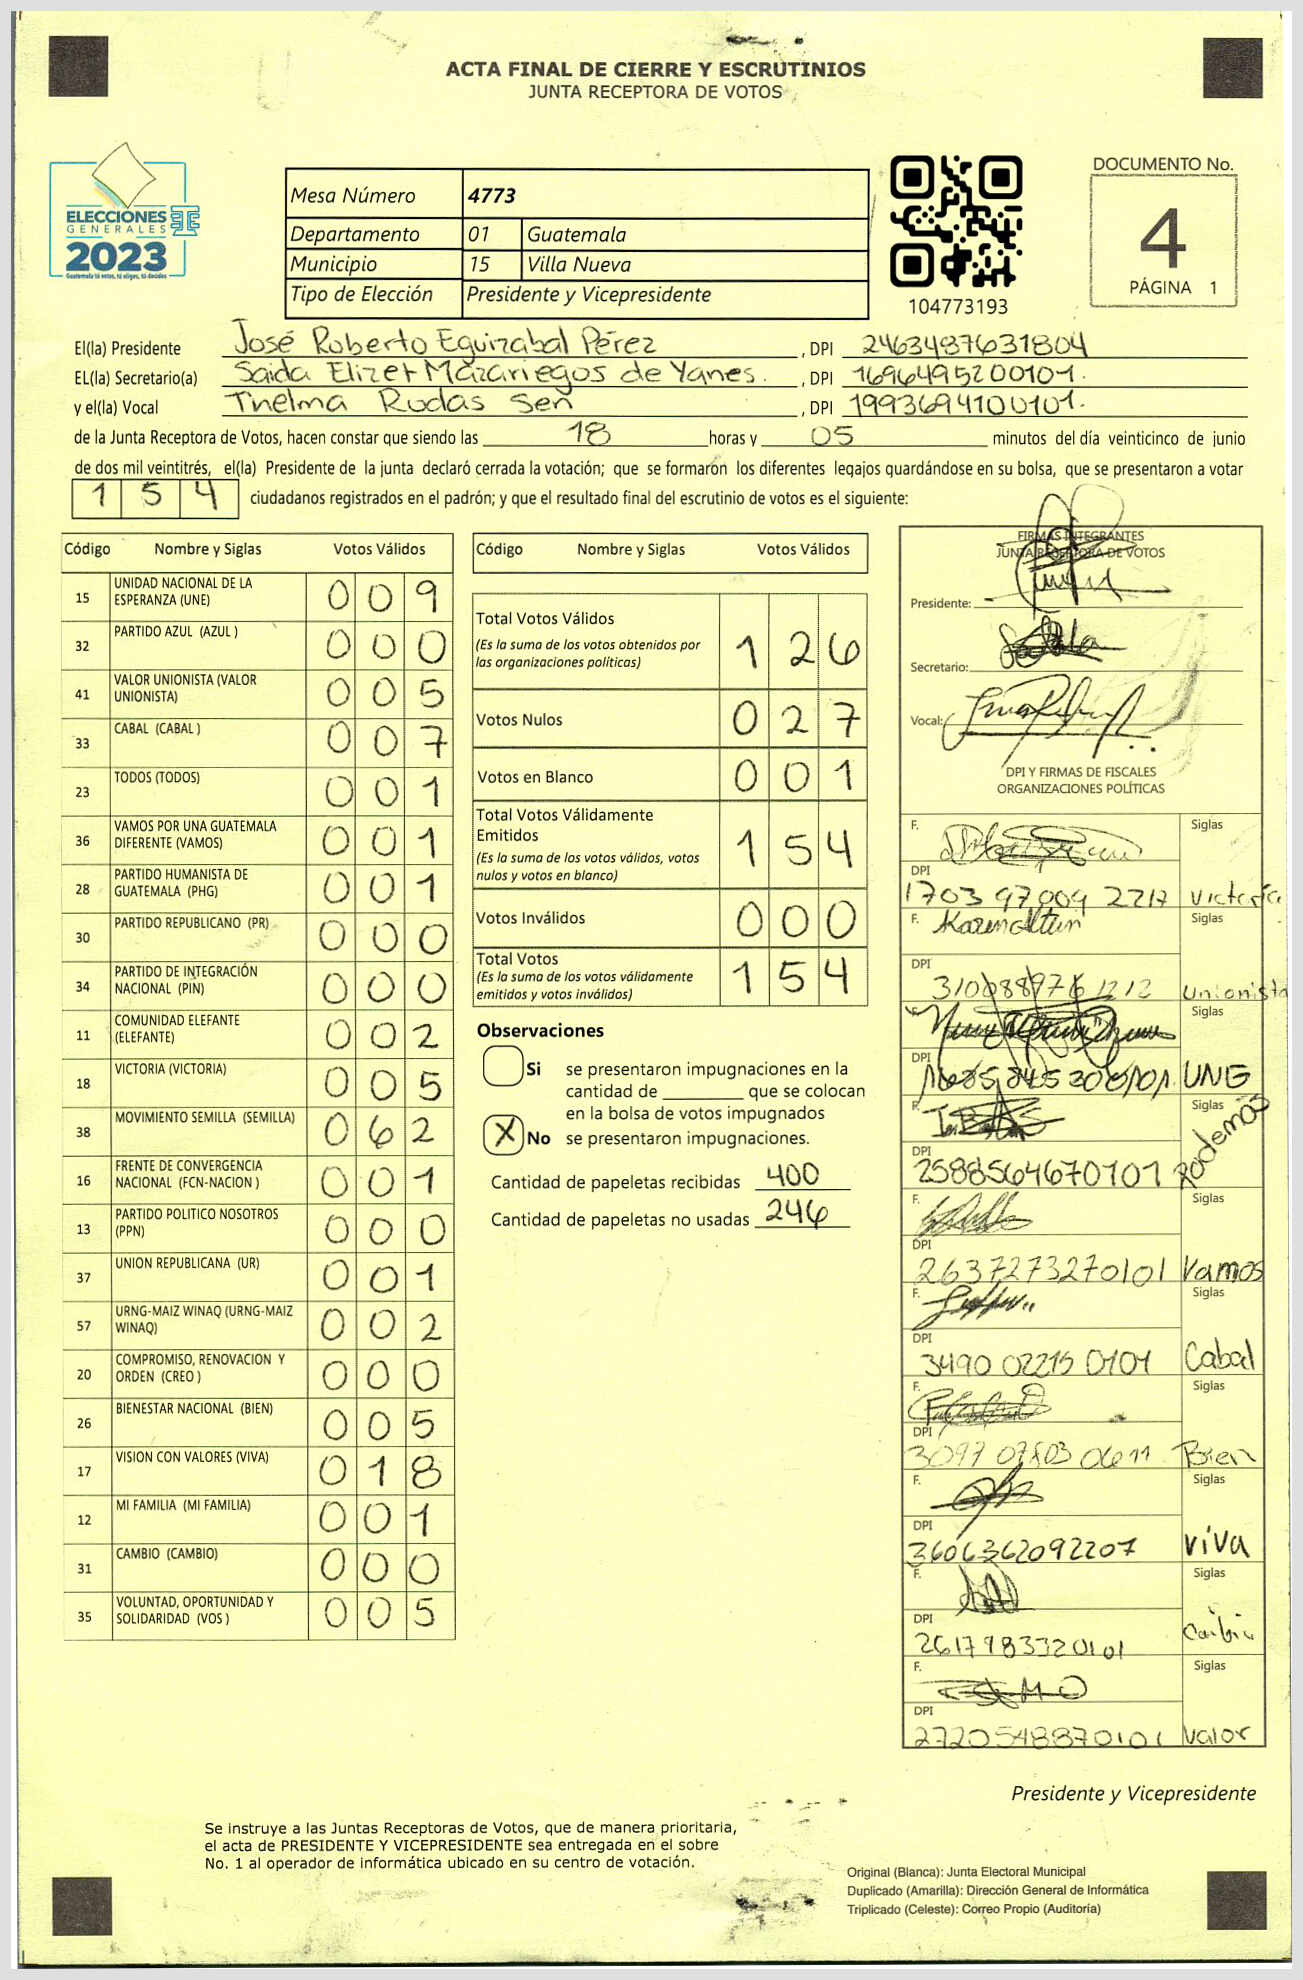 ACTA FINAL DE CIERRE Y ESCRUTINIOS
JUNTA RECEPTORA DE VOTOS
ELECCIONES
GENERALES
2023
Guatemala tú votas, tú eliges, tú decides
Mesa Número 4773
Departamento 01 Guatemala
Municipio 15 Villa Nueva
Tipo de Elección Presidente y Vicepresidente
104773193
DOCUMENTO No.
4
PÁGINA 1
El(la) Presidente José Roberto Eguizabal Pérez , DPI 2463487631804
EL(la) Secretario(a) Saida Elizet Mazariegos de Yanes. , DPI 1696495200101.
y el(la) Vocal Thelma Rodas Señ , DPI 1993694100101.
de la Junta Receptora de Votos, hacen constar que siendo las 18 horas y 05 minutos del día veinticinco de junio
de dos mil veintitrés, el(la) Presidente de la junta declaró cerrada la votación; que se formaron los diferentes legajos guardándose en su bolsa, que se presentaron a votar
1 5 4 ciudadanos registrados en el padrón; y que el resultado final del escrutinio de votos es el siguiente:
Código Nombre y Siglas Votos Válidos
15 UNIDAD NACIONAL DE LA ESPERANZA (UNE) 0 0 9
32 PARTIDO AZUL (AZUL ) 0 0 0
41 VALOR UNIONISTA (VALOR UNIONISTA) 0 0 5
33 CABAL (CABAL ) 0 0 7
23 TODOS (TODOS) 0 0 1
36 VAMOS POR UNA GUATEMALA DIFERENTE (VAMOS) 0 0 1
28 PARTIDO HUMANISTA DE GUATEMALA (PHG) 0 0 1
30 PARTIDO REPUBLICANO (PR) 0 0 0
34 PARTIDO DE INTEGRACIÓN NACIONAL (PIN) 0 0 0
11 COMUNIDAD ELEFANTE (ELEFANTE) 0 0 2
18 VICTORIA (VICTORIA) 0 0 5
38 MOVIMIENTO SEMILLA (SEMILLA) 0 6 2
16 FRENTE DE CONVERGENCIA NACIONAL (FCN-NACION ) 0 0 1
13 PARTIDO POLITICO NOSOTROS (PPN) 0 0 0
37 UNION REPUBLICANA (UR) 0 0 1
57 URNG-MAIZ WINAQ (URNG-MAIZ WINAQ) 0 0 2
20 COMPROMISO, RENOVACION Y ORDEN (CREO ) 0 0 0
26 BIENESTAR NACIONAL (BIEN) 0 0 5
17 VISION CON VALORES (VIVA) 0 1 8
12 MI FAMILIA (MI FAMILIA) 0 0 1
31 CAMBIO (CAMBIO) 0 0 0
35 VOLUNTAD, OPORTUNIDAD Y SOLIDARIDAD (VOS ) 0 0 5
Código Nombre y Siglas Votos Válidos
Total Votos Válidos
(Es la suma de los votos obtenidos por las organizaciones políticas) 1 2 6
Votos Nulos 0 2 7
Votos en Blanco 0 0 1
Total Votos Válidamente Emitidos
(Es la suma de los votos válidos, votos nulos y votos en blanco) 1 5 4
Votos Inválidos 0 0 0
Total Votos
(Es la suma de los votos válidamente emitidos y votos inválidos) 1 5 4
Observaciones
Si se presentaron impugnaciones en la
cantidad de ________ que se colocan
en la bolsa de votos impugnados
X No se presentaron impugnaciones.
Cantidad de papeletas recibidas 400
Cantidad de papeletas no usadas 246
FIRMAS INTEGRANTES
JUNTA RECEPTORA DE VOTOS
Presidente:
Secretario:
Vocal:
DPI Y FIRMAS DE FISCALES
ORGANIZACIONES POLÍTICAS
F. Siglas
DPI
1703 97009 2217 Victoria
F. Siglas
DPI
310088976 1212 Unionista
Siglas
DPI
UNE
F. Siglas
DPI
2588564670101 Podemos
F. Siglas
DPI
2637273270101 Vamos
F. Siglas
DPI
3490 02215 0101 Cabal
F. Siglas
DPI
3097 07803 0611 Bien
F. Siglas
DPI
3606362092207 VIVA
F. Siglas
DPI
2617983320101
F. Siglas
DPI
2720548870101 Valor
Presidente y Vicepresidente
Se instruye a las Juntas Receptoras de Votos, que de manera prioritaria,
el acta de PRESIDENTE Y VICEPRESIDENTE sea entregada en el sobre
No. 1 al operador de informática ubicado en su centro de votación.
Original (Blanca): Junta Electoral Municipal
Duplicado (Amarilla): Dirección General de Informática
Triplicado (Celeste): Correo Propio (Auditoría)